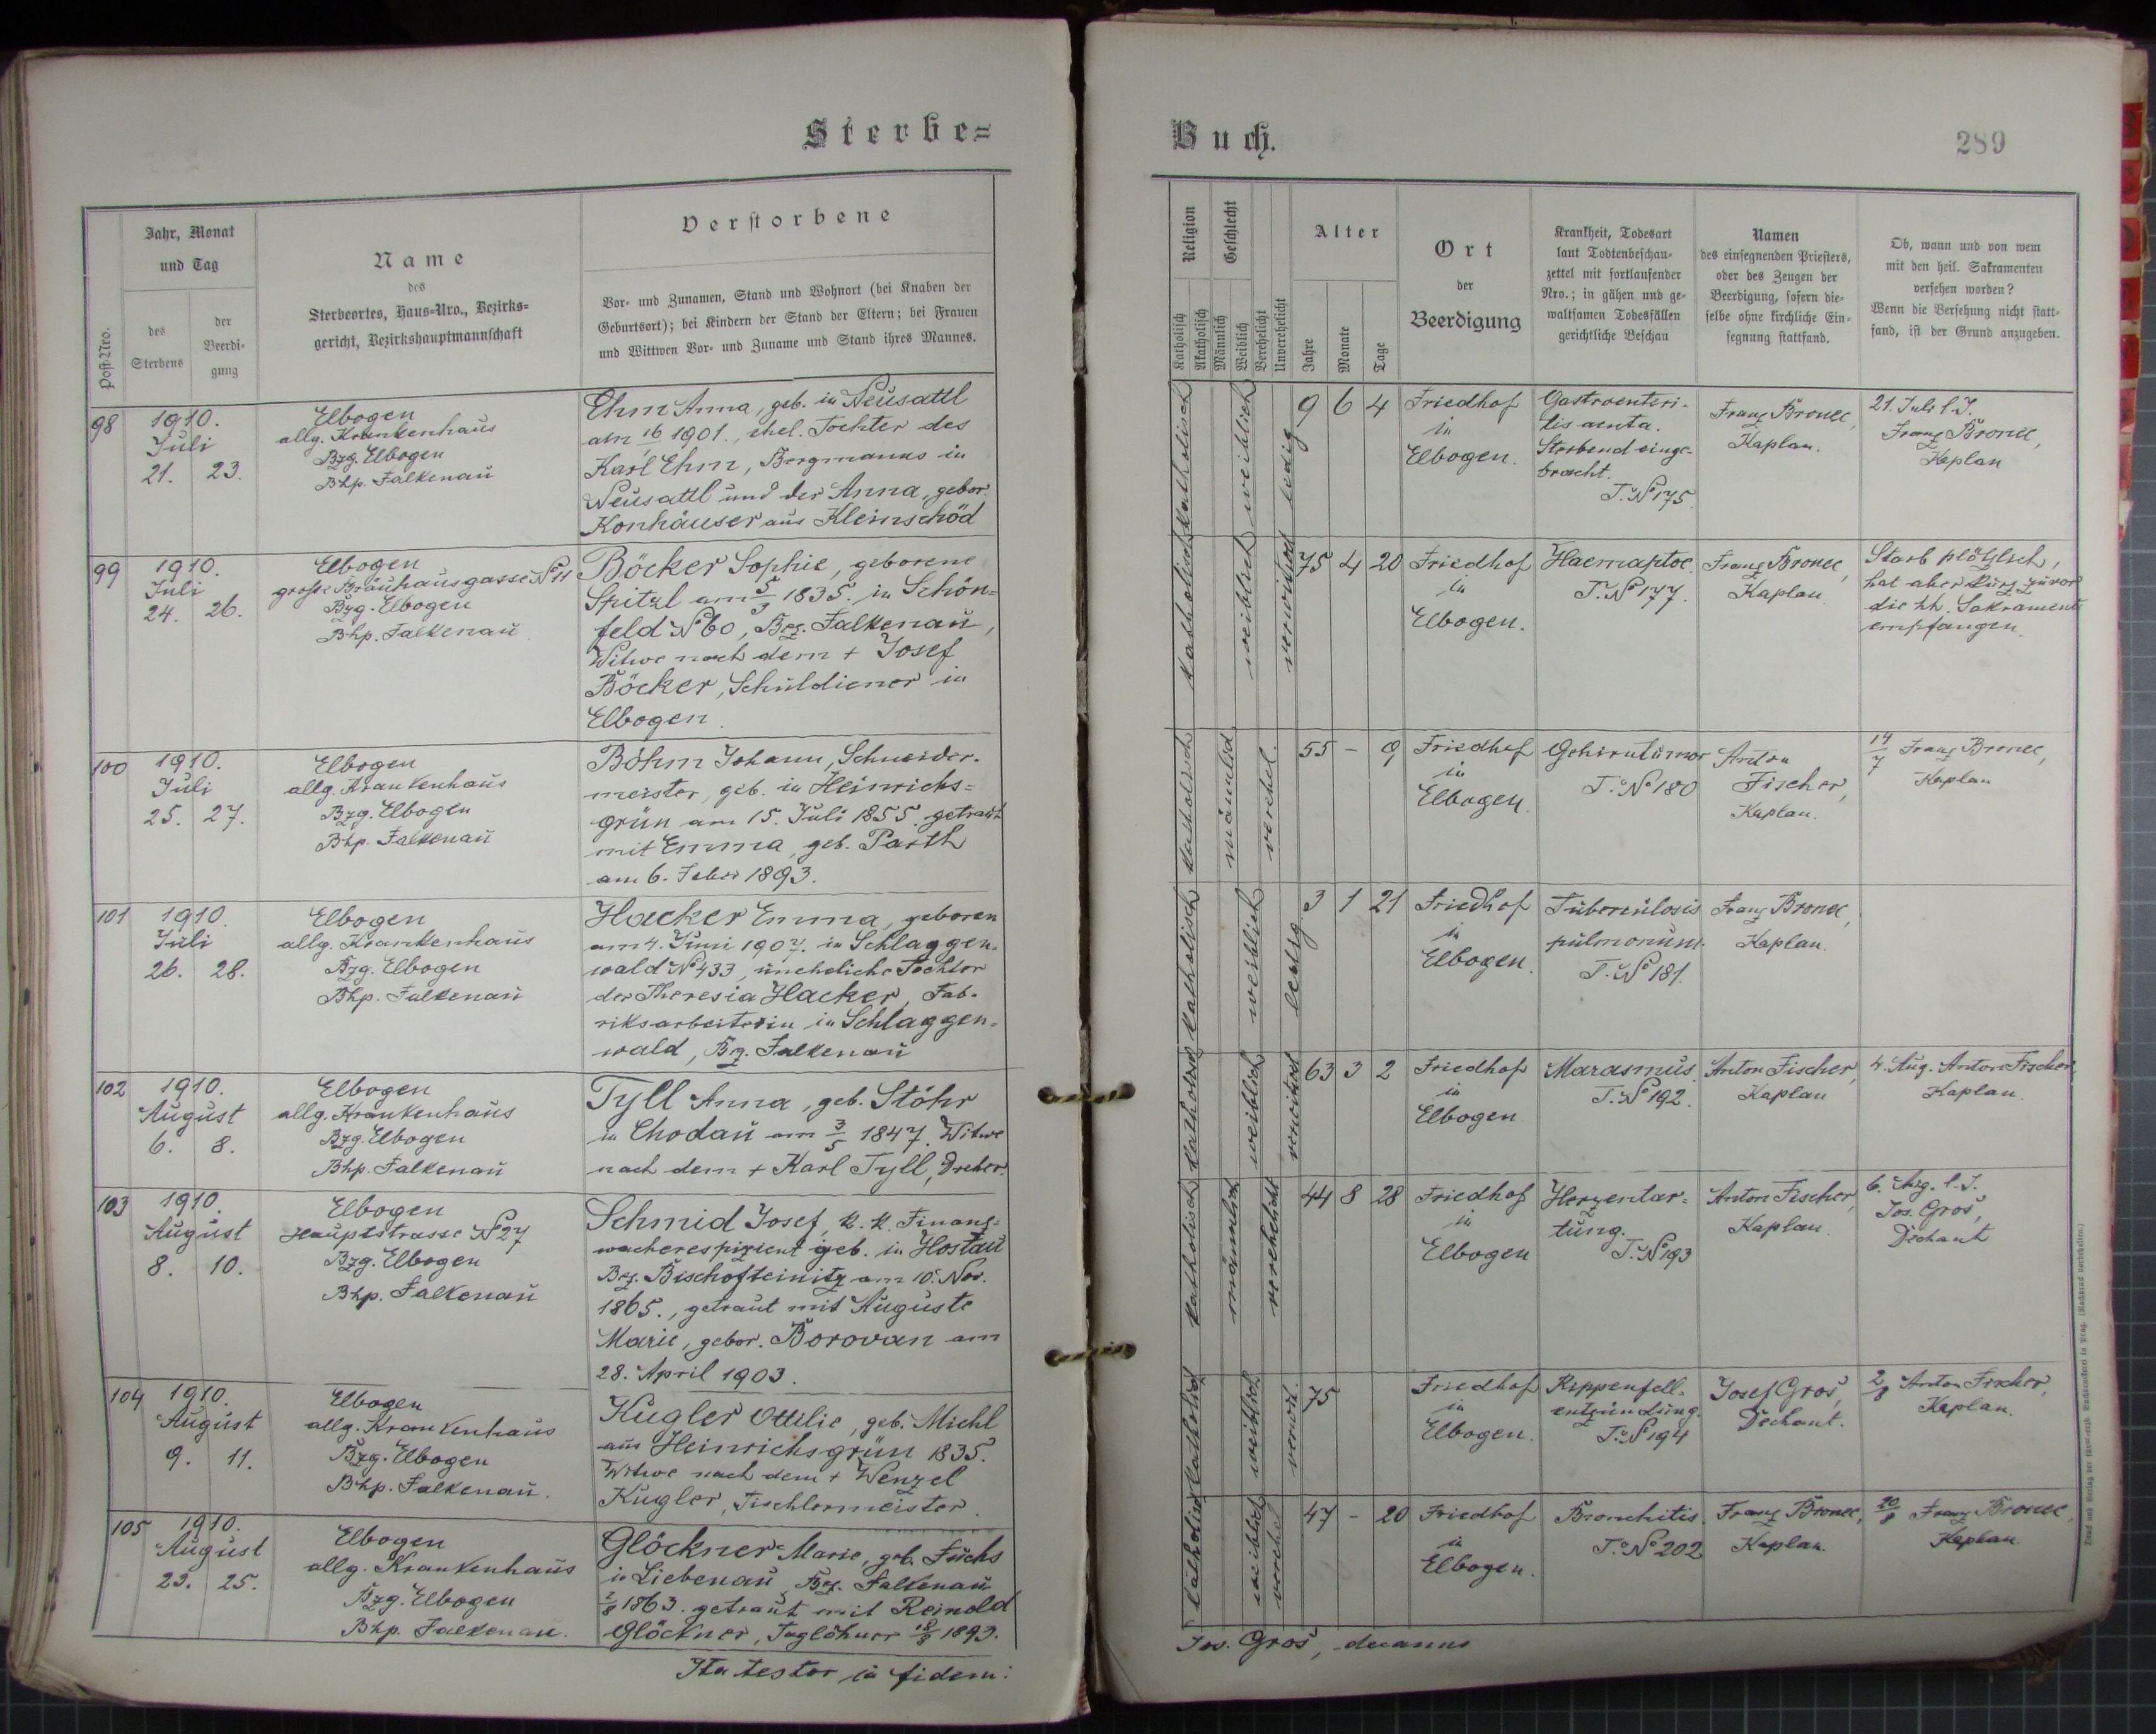 Sterbe=
Jahr, Monat
und Tag
Post-Nro.
des
Sterbens
der
Beerdi-
gung
Name
des
Sterbeortes, Haus-Nro., Bezirks-
gericht, Bezirkshauptmannschaft
Verstorbene
Vor- und Zunamen, Stand und Wohnort (bei Knaben der
Geburtsort); bei Kindern der Stand der Eltern; bei Frauen
und Wittwen Vor- und Zuname und Stand ihres Mannes.
98
1910.
Juli
21. 23.
Elbogen
allg. Krankenhaus
Bzg. Elbogen
Bhp. Falkenau
Ehm Anna, geb. in Neusattl
am 16 1901., ehel. Tochter des
Karl Ehm, Bergmanns in
Neusattl und der Anna, gebor.
Konhäuser aus Kleinschöd
99
1910.
Juli
24. 26.
Elbogen
grosse Bräuhausgasse No 11
Bzg. Elbogen
Bhp. Falkenau
Böcker Sophie, geborene
Spitzl am 5/3 1835. in Schön=
feld No 60, Bez. Falkenau,
Witwe nach dem + Josef
Böcker, Schuldiener in
Elbogen.
100
1910.
Juli
25. 27.
Elbogen
allg. Krankenhaus
Bzg. Elbogen
Bhp. Falkenau
Böhm Johann, Schneider-
meister, geb. in Heinrichs=
grün am 15. Juli 1855. getraut
mit Emma, geb. Parth
am 6. Feber 1893.
101
1910.
Juli
26. 28.
Elbogen
allg. Krankenhaus
Bzg. Elbogen
Bhp. Falkenau
Hacker Emma, geboren
am 4. Juni 1907. in Schlaggen=
wald No 433, uneheliche Tochter
der Theresia Hacker, Fab-
riksarbeiterin in Schlaggen=
wald, Bz. Falkenau
102
1910.
August
6. 8.
Elbogen
allg. Krankenhaus
Bzg. Elbogen
Bhp. Falkenau
Tyll Anna, geb. Stöhr
in Chodau am 3/5 1847. Witwe
nach dem + Karl Tyll, Dreher.
103
1910.
August
8. 10.
Elbogen
Hauptstrasse No 27
Bzg. Elbogen
Bhp. Falkenau
Schmid Josef, k. k. Finanz=
wacherespizient geb. in Hostau
Bez. Bischofteinitz am 10. Nov.
1865., getraut mit Auguste
Marie, gebor. Borovan am
28. April 1903.
104
1910.
August
9. 11.
Elbogen
allg. Krankenhaus
Bzg. Elbogen
Bhp. Falkenau.
Kugler Ottilie, geb. Michl
aus Heinrichsgrün 1835.
Witwe nach dem + Wenzel
Kugler, Tischlermeister.
105
1910.
August
23. 25.
Elbogen
allg. Krankenhaus
Bzg. Elbogen
Bhp. Falkenau.
Glöckner Marie, geb. Fuchs
in Liebenau, Bez. Falkenau
2/8 1863. getraut mit Reinold
Glöckner, Taglöhner 1893.
Ita testor in fidem:
Buch.
289
Religion
Katholisch
Akatholisch
Geschlecht
Männlich
Weiblich
Verehelicht
Unverehelicht
Alter
Jahre
Monate
Tage
Ort
der
Beerdigung
Krankheit, Todesart
laut Todtenbeschau-
zettel mit fortlaufender
Nro.; in gähen und ge-
waltsamen Todesfällen
gerichtliche Beschau
Namen
des einsegnenden Priesters,
oder des Zeugen der
Beerdigung, sofern die-
selbe ohne kirchliche Ein-
segnung stattfand.
Ob, wann und von wem
mit den heil. Sakramenten
versehen worden?
Wenn die Versehung nicht statt-
fand, ist der Grund anzugeben.
katholisch
weiblich
ledig
9 6 4
Friedhof
in
Elbogen.
Gastroenteri-
tis acuta.
Sterbend einge-
bracht.
T. No 175
Franz Bronec,
Kaplan.
21. Juli l. J.
Franz Bronec,
Kaplan
katholisch
weiblich
verwitwet
75 4 20
Friedhof
in
Elbogen.
Haemaptoe.
T. No 177.
Franz Bronec,
Kaplan
Starb plötzlich,
hat aber kurz zuvor
die hh. Sakramente
empfangen.
katholisch
männlich
verehel.
55 - 9
Friedhof
in
Elbogen.
Gehirntumor
T. No 180
Anton
Fischer,
Kaplan.
14/7 Franz Bronec,
Kaplan
katholisch
weiblich
ledig
3 1 21
Friedhof
in
Elbogen.
Tuberculosis
pulmonum.
T. No 181.
Franz Bronec,
Kaplan.
katholisch
weiblich
verwitwet
63 3 2
Friedhof
in
Elbogen
Marasmus.
T. No 192.
Anton Fischer,
Kaplan
4. Aug. Anton Fischer,
Kaplan.
katholisch
männlich
verehelicht
44 8 28
Friedhof
in
Elbogen
Herzentar=
tung.
T. No 193
Anton Fischer,
Kaplan.
6. Aug. l. J.
Jos. Gros,
Dechant
katholisch
weiblich
verwit.
75
Friedhof
in
Elbogen.
Rippenfell-
entzündung.
T. No 194
Josef Gros,
Dechant.
2/8 Anton Fischer,
Kaplan.
katholisch
weiblich
verehel.
47 - 20
Friedhof
in
Elbogen.
Bronchitis.
T. No 202
Franz Bronec,
Kaplan.
20/8 Franz Bronec,
Kaplan.
Jos. Gros, decanus